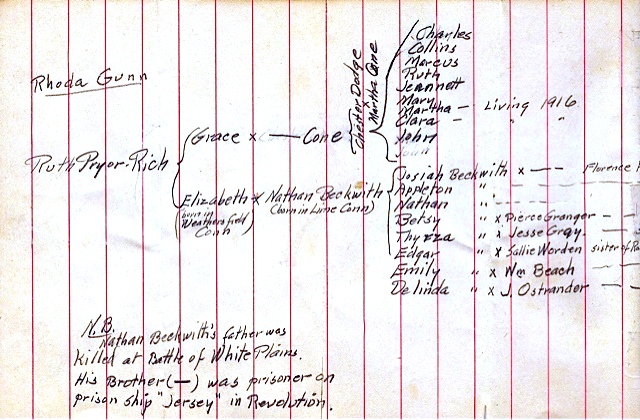 Rhoda Gunn
Ruth Pryor-Rich
Grace x — Cone
Chester Dodge
x
Martha Cone
Charles
Collins
Marcus
Ruth
Jeannett
Mary
Martha — Living 1916
Clara — " "
John
Elizabeth x Nathan Beckwith
(born in Weathersfield Conn) (born in Lime Conn)
Josiah Beckwith x --- Florence
Appleton "
Nathan "
Betsy " x Pierce Granger —
Thyzza " x Jesse Gray. —
Edgar " x Sallie Worden sister of
Emily " x Wm Beach
Delinda " x J. Ostrander —
N.B.
Nathan Beckwith's father was
killed at Battle of White Plains.
His Brother (—) was prisoner on
prison ship "Jersey" in Revolution.